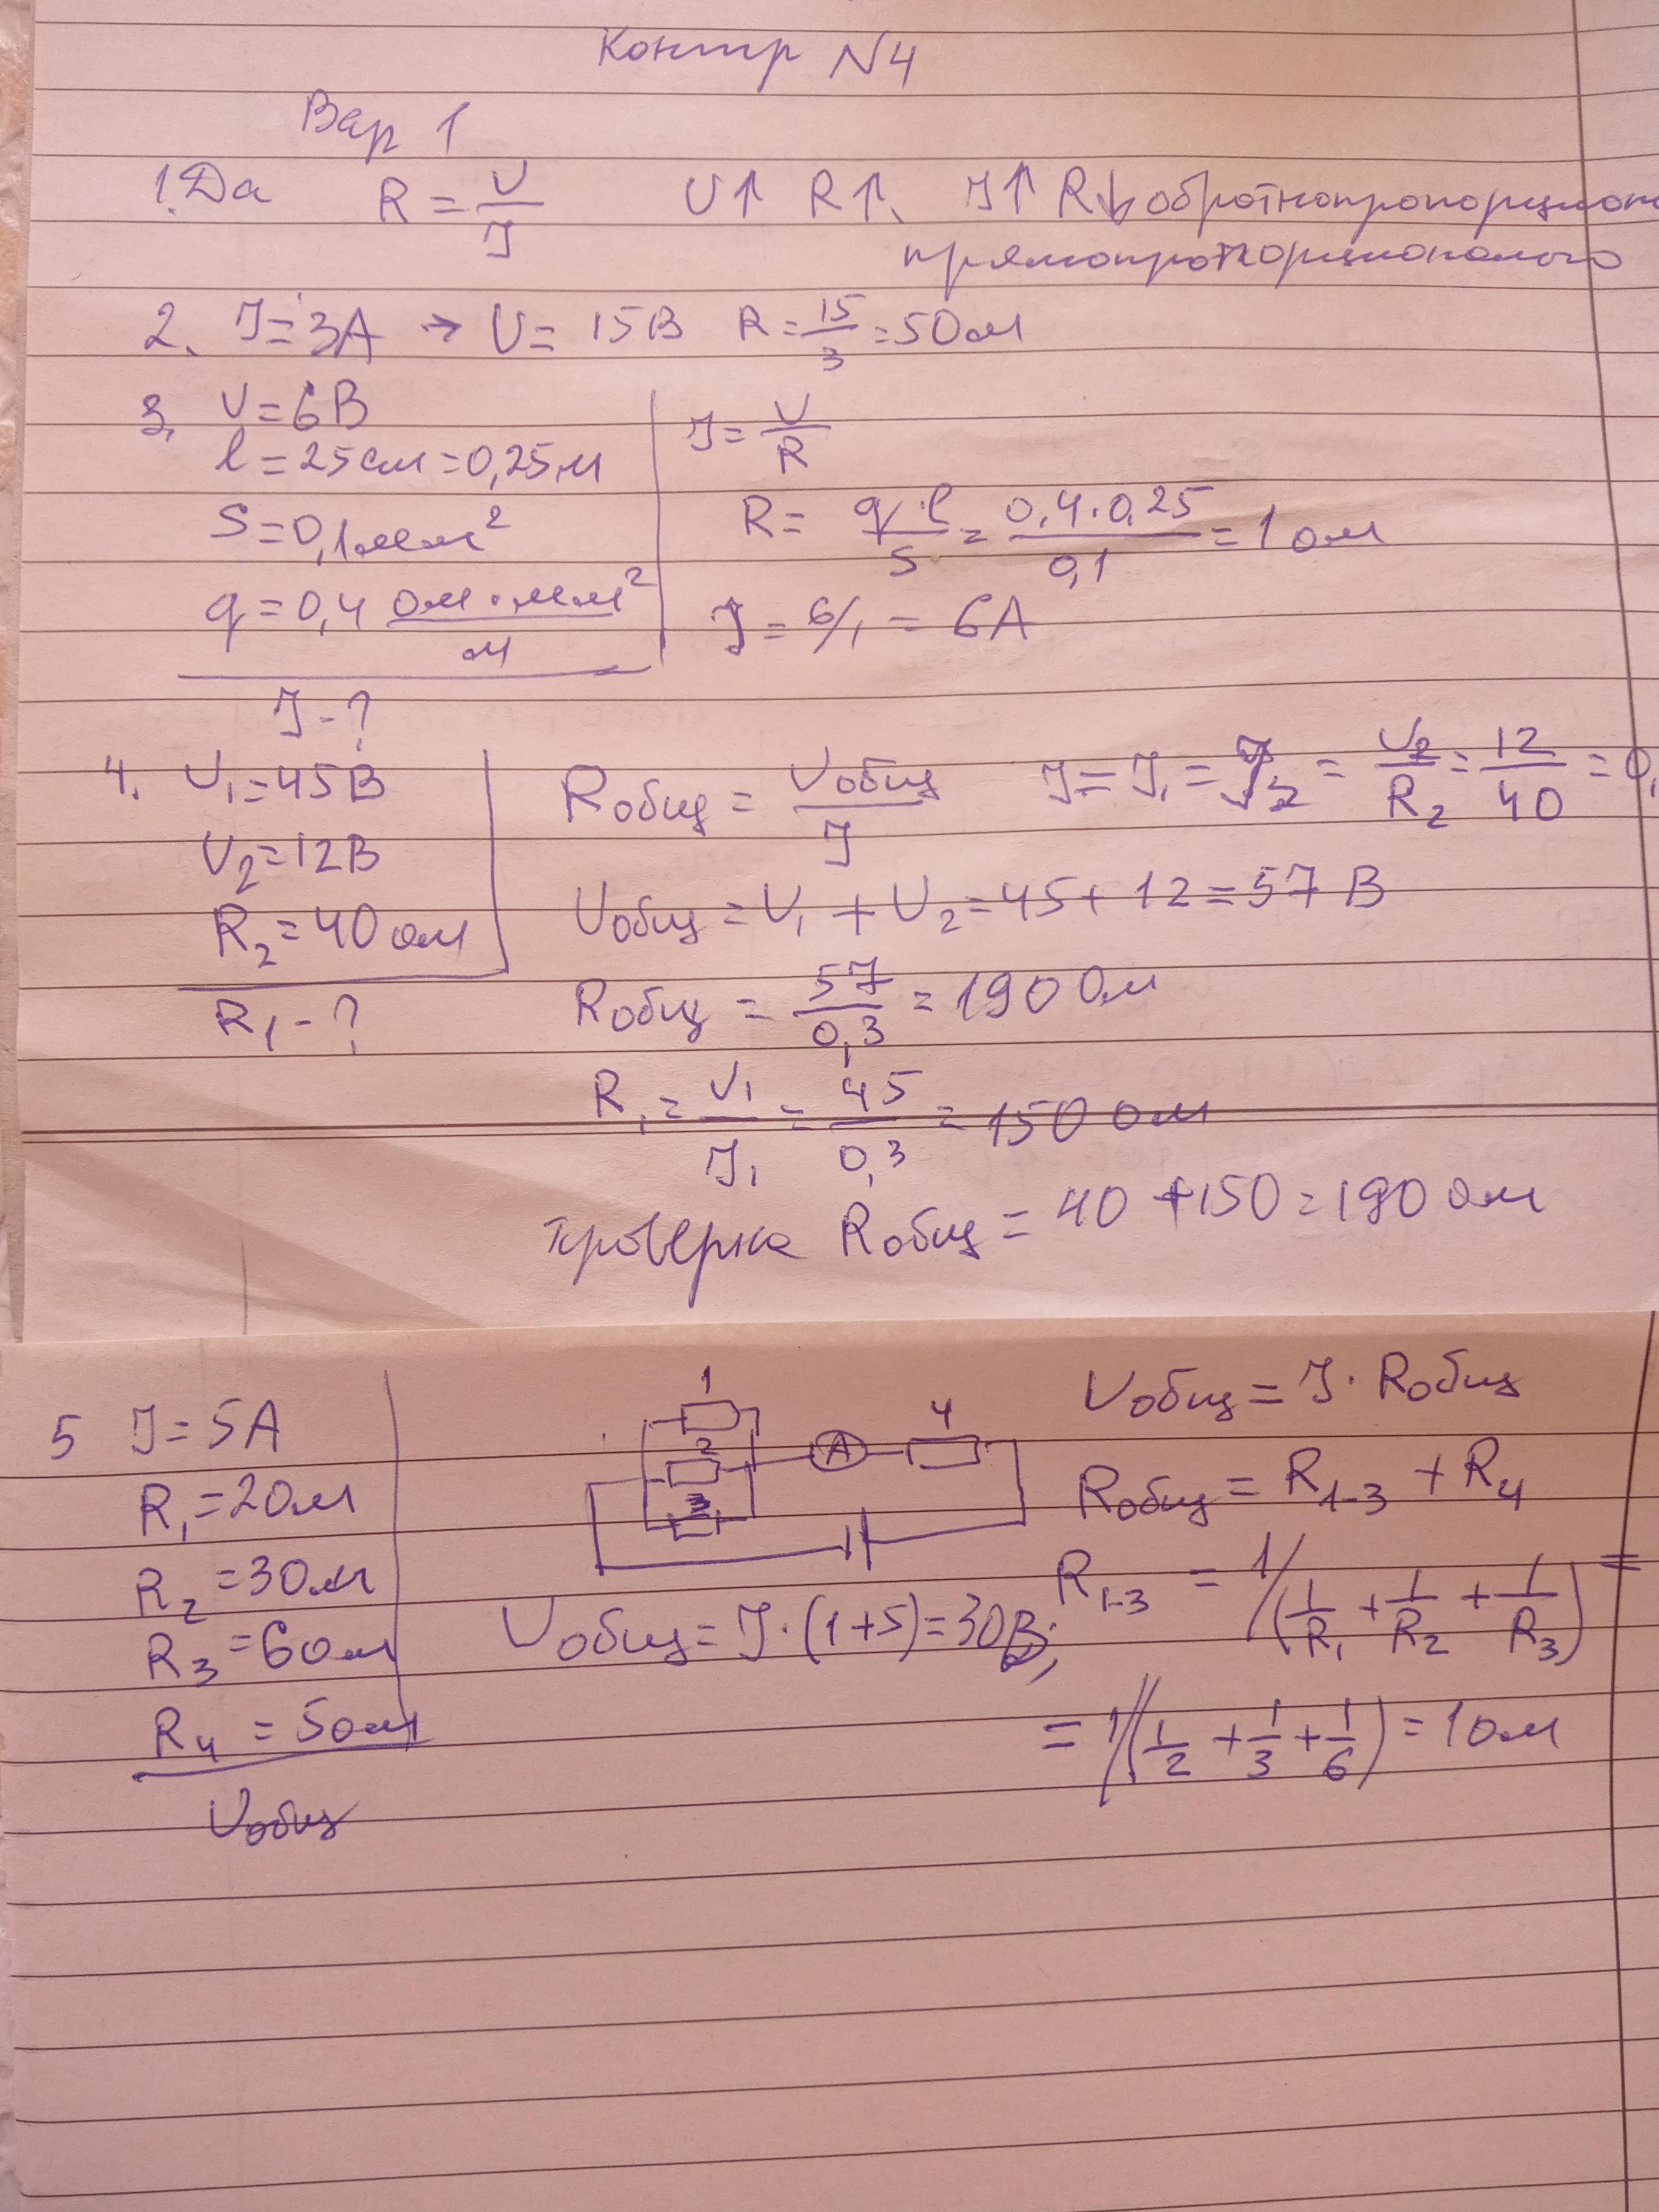 Контр N4
Вар 1
1. Да R = U/J U↑ R↑, J↑ R↓ обратнопропорцион
прямопропорционально
2. J = 3A → U = 15 В R = 15/3 = 5 Ом
3. U = 6 В
l = 25 см = 0,25 м
S = 0,1 мм²
q = 0,4 ом·мм²/м
J - ?
J = U/R
R = q·l/S = 0,4·0,25/0,1 = 1 ом
J = 6/1 = 6A
4. U₁ = 45 В
U₂ = 12 В
R₂ = 40 ом
R₁ - ?
Rобщ = Uобщ/J J = J₁ = J₂ = U₂/R₂ = 12/40 = 0,
Uобщ = U₁ + U₂ = 45 + 12 = 57 В
Rобщ = 57/0,3 = 190 Ом
R₁ = U₁/J₁ = 45/0,3 = 150 ом
проверка Rобщ = 40 + 150 = 190 ом
5 J = 5A
R₁ = 2 Ом
R₂ = 3 Ом
R₃ = 6 Ом
R₄ = 5 Ом
Uобщ
1
2
3
A
4
Uобщ = J · Rобщ
Rобщ = R₁₋₃ + R₄
R₁₋₃ = 1/(1/R₁ + 1/R₂ + 1/R₃) =
= 1/(1/2 + 1/3 + 1/6) = 1 Ом
Uобщ = J·(1+5) = 30 В;